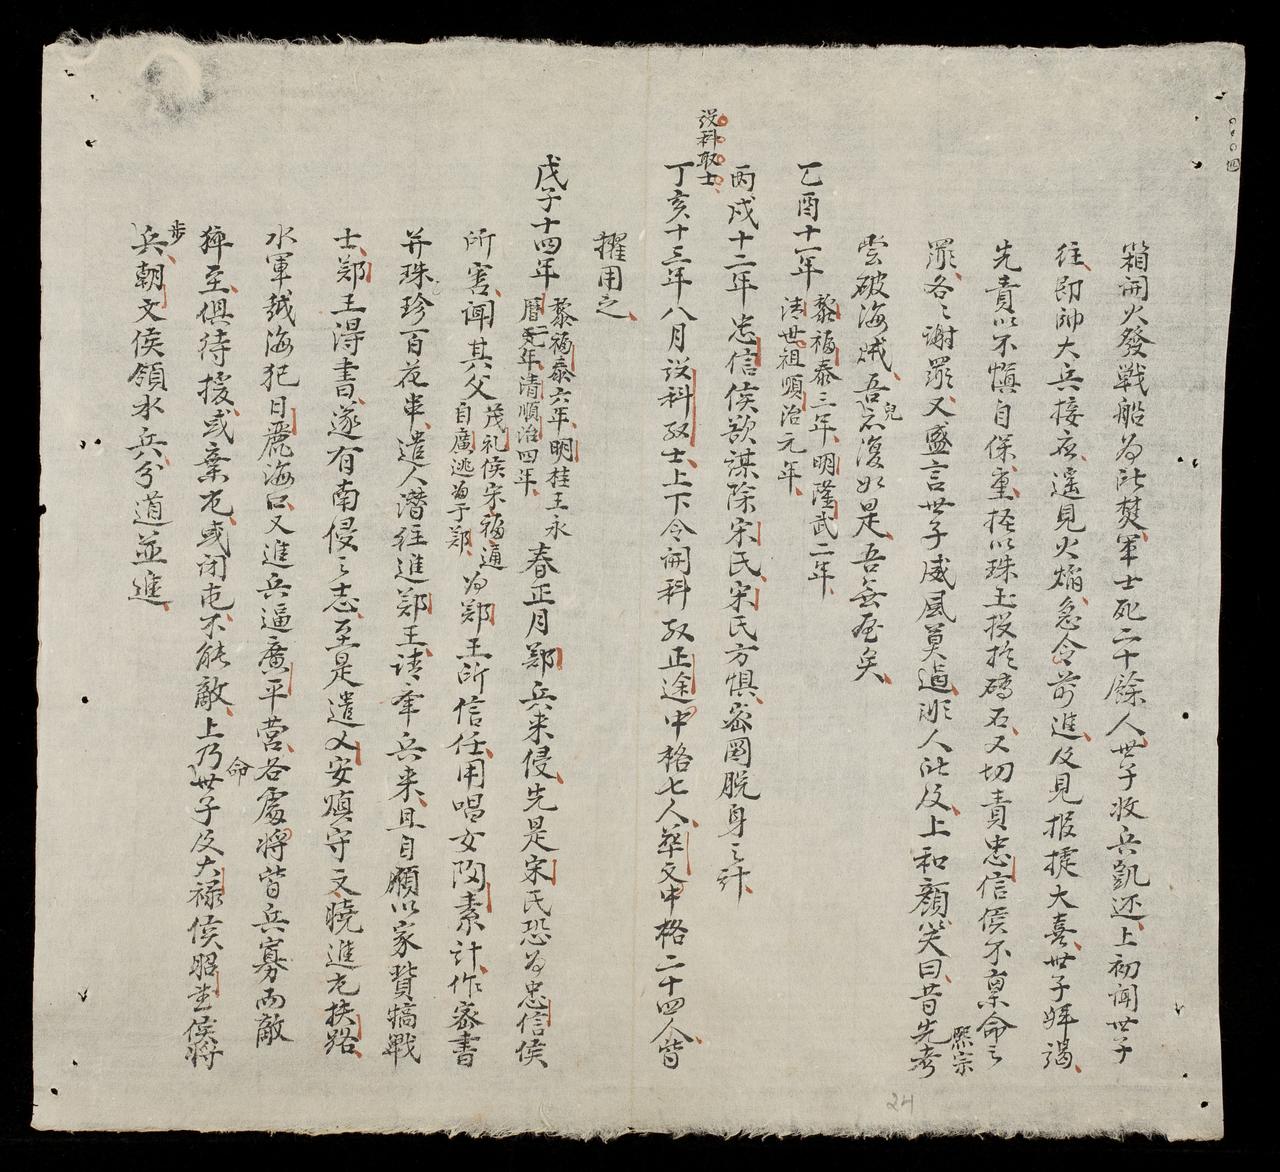 箱開火發戰船為此焚軍士死二十餘人世子收兵凱还上初闻世子
往即帥大兵接應遥見火焰急令前進及見报捷大喜世子拜谒
先責以不慎自保重孫以珠玉投於磚石又切責忠信侯不禀命之
罪各谢罪又盛言世子威風莫過此人此及上和顔笑曰昔先考
熙宗
雲破海贼吾兒亦復如是吾無登矣
乙酉十一年
黎福泰三年明隆武二年
清世祖順治元年
丙戌十二年忠信侯欲謀除宋氏宋氏方惧密圖脱身之計
設科取士
丁亥十三年八月設科取士上下令開科取正途中格七人華文中格二十四人皆
擢用之
戊子十四年
黎福泰六年明桂王永
曆元年清順治四年
春正月鄭兵来侵先是宋氏恐為忠信侯
所害闻其父
茂礼侯宋福通
自廣逃為于鄭
為鄭王所信任用唱女陶素計作密書
并珠珍百花串遣人潛往進鄭王请率兵来且自願以家貲犒戰
士鄭王得書遂有南侵之志至是遣人安鎮守文曉進尨扶路
水軍越海犯日麗海口又進兵逼廣平营各處将皆兵寡而敵
猝至俱待援或棄屯或闭屯不能敵上乃命世子及大禄侯昭堂侯将
步
兵朝文侯領水兵分道並進